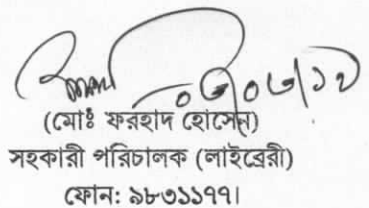 (মোঃ ফরহাদ হোসেন)
সহকারী পরিচালক (লাইব্রেরী)
ফোন: ৯৮৩১১৭৭।